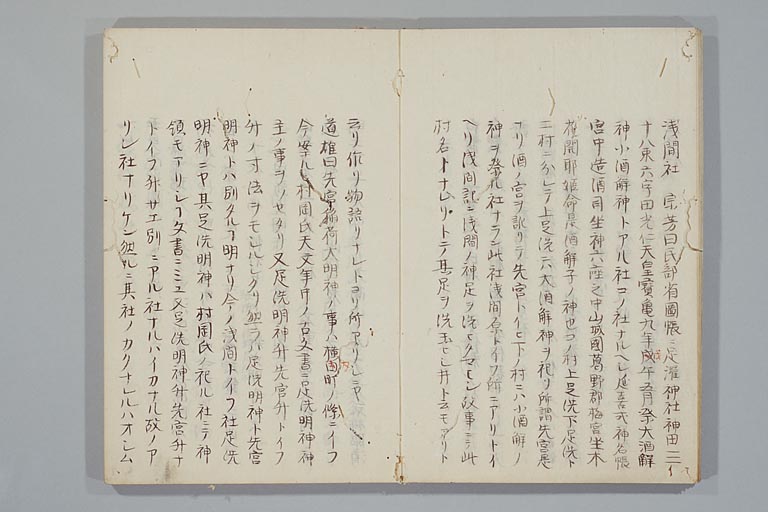 浅間社 宗芳曰民部省図帳ニ足灌神社神田二
十八束六字田光仁天皇宝亀九年戊午五月祭大酒解
神小酒解神トアル社コノ社ナルヘシ延喜式神名帳
宮中造酒司坐神六座之中山城国葛野郡梅宮坐木
花開耶姫命是酒解子ノ神也コノ村上足洗下足洗ト
二村ニ分レテ上足洗ハ大酒解神ヲ祝リ所謂先宮是
ナリ酒ノ宮ヲ訛リテ先宮トイヒ下村ニハ小酒解ノ
神ヲ祭ル社ナラン此社浅間原トイフ所ニアリトイ
ヘリ浅間記ニ浅間ノ神足ヲ洗セタマヒシ故事ニテ此
村名トナレリトテ其足ヲ洗玉ヒシ井ト云モアリト
云リ作リ物語リナレトヨリ所アリシニヤ
道雄曰先宮稲荷大明神ノ事ハ横田町ノ條ニイフ
今ノ案ルニ村岡氏天文年中ノ古文書ニ足洗明神神
主ノ事ヲノセタリ又足洗明神并先宮并トイフ
并ノ寸法ヲモシルシタリ然ラハ足洗明神ト先宮
明神トハ別タルコ明ナリ今ノ浅間トイフ社足洗
明神ニヤ其足洗明神ハ村岡氏ノ祀ル社ニテ神
領モアリシコ文書ニミユ又足洗明神并先宮并ナ
トイフ弥サエ別ニアル社ナルハイカナル故ノア
リシ社ナリケン然ルニ其社ノカクナレルハオシム